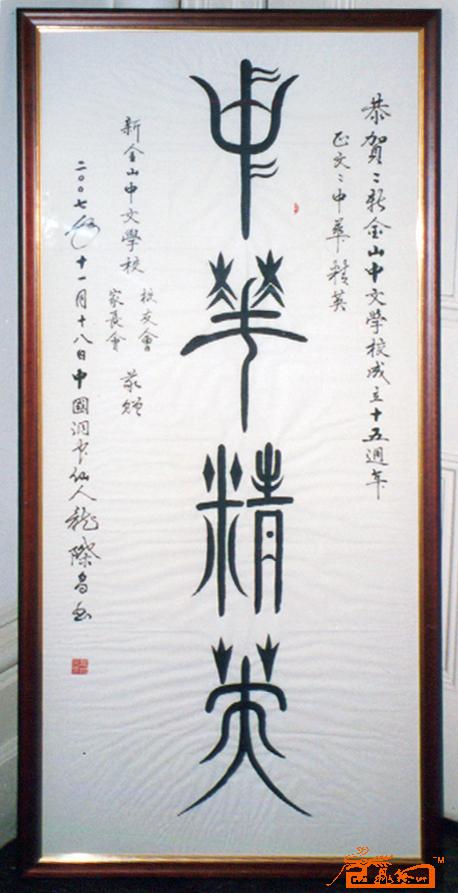 恭賀：新金山中文學校成立十五週年
正文：中華精英
中華精英
校友會
家長會
敬贈
新金山中文學校
二〇〇七年十一月十八日中國洞穴仙人龍際書